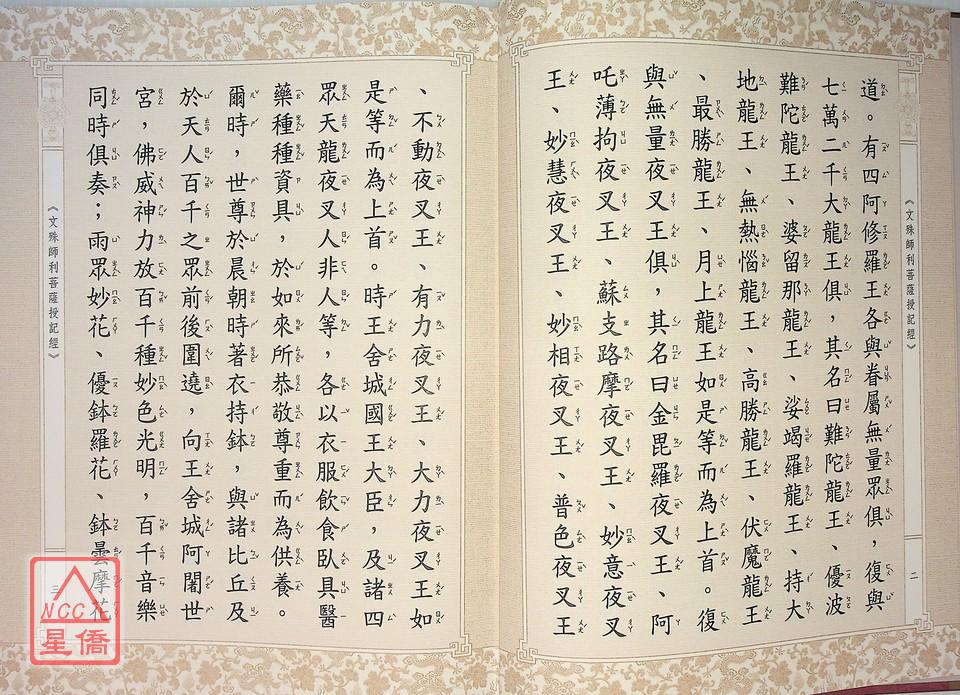 道。有四阿修羅王各與眷屬無量眾俱，復與
七萬二千大龍王俱，其名曰難陀龍王、優波
難陀龍王、婆留那龍王、娑竭羅龍王、持大
地龍王、無熱惱龍王、高勝龍王、伏魔龍王
、最勝龍王、月上龍王如是等而為上首。復
與無量夜叉王俱，其名曰金毘羅夜叉王、阿
吒薄拘夜叉王、蘇支路摩夜叉王、妙意夜叉
王、妙慧夜叉王、妙相夜叉王、普色夜叉王
《文殊師利菩薩授記經》
二
、不動夜叉王、有力夜叉王、大力夜叉王如
是等而為上首。時王舍城國王大臣，及諸四
眾天龍夜叉人非人等，各以衣服飲食臥具醫
藥種種資具，於如來所恭敬尊重而為供養。
爾時，世尊於晨朝時著衣持鉢，與諸比丘及
於天人百千之眾前後圍遶，向王舍城阿闍世
宮，佛威神力放百千種妙色光明，百千音樂
同時俱奏；雨眾妙花、優鉢羅花、鉢曇摩花
《文殊師利菩薩授記經》
三
NCC
星僑